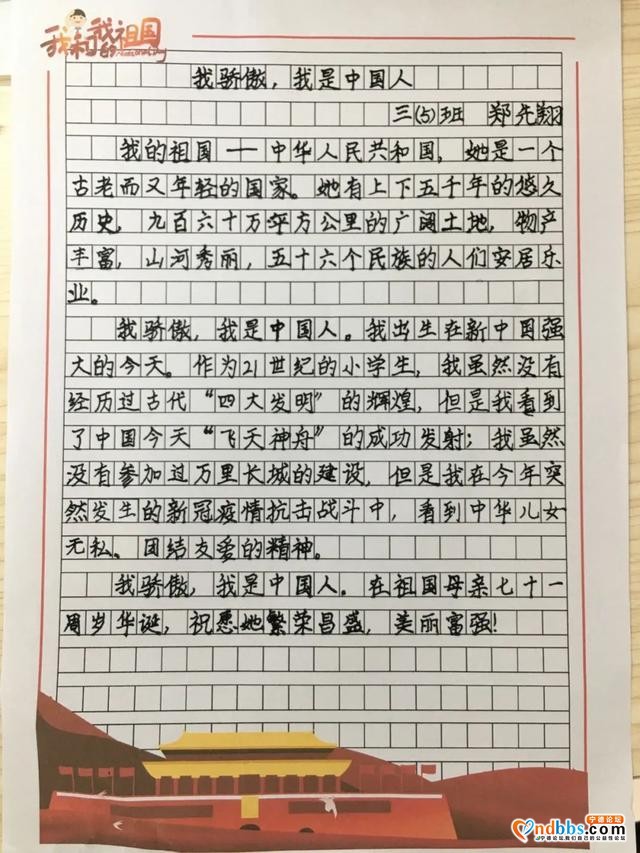 我和我的祖国
我骄傲，我是中国人
三(5)班 郑先翔
我的祖国——中华人民共和国，她是一个
古老而又年轻的国家。她有上下五千年的悠久
历史，九百六十万平方公里的广阔土地，物产
丰富，山河秀丽，五十六个民族的人们安居乐
业。
我骄傲，我是中国人。我出生在新中国强
大的今天。作为21世纪的小学生，我虽然没有
经历过古代“四大发明”的辉煌，但是我看到
了中国今天“飞天神舟”的成功发射；我虽然
没有参加过万里长城的建设，但是我在今年突
然发生的新冠疫情抗击战斗中，看到中华儿女
无私、团结友爱的精神。
我骄傲，我是中国人。在祖国母亲七十一
周岁华诞，祝愿她繁荣昌盛，美丽富强！
宁德论坛
ndbbs.com